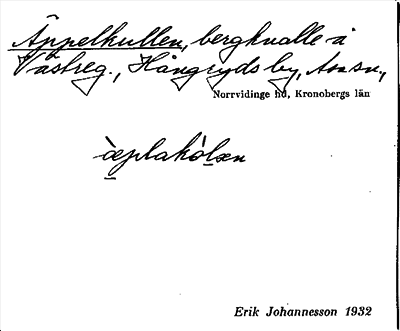 Äppelkullen, bergknalle å
Västreg., Hångryds by, Asa sn.,
Norrvidinge hd, Kronobergs län
æplakòlæn
Erik Johannesson 1932